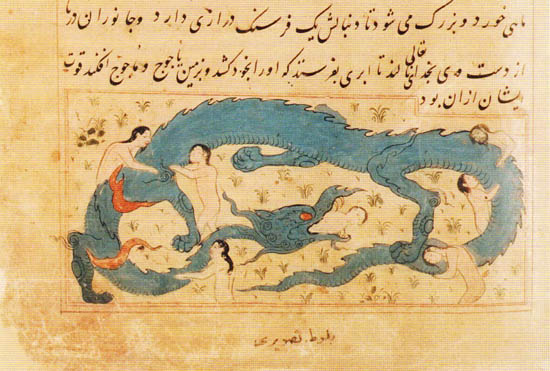 ماهی خورد و بزرگ می شود تا دنبالش یک فرسنگ درازی دارد و جانوران دریا
از دست وی بخدای تعالی نالند تا ابری بفرستد که اورا بخود کشد و بزمین یاجوج و ماجوج افکند قوت
ایشان ازان بود